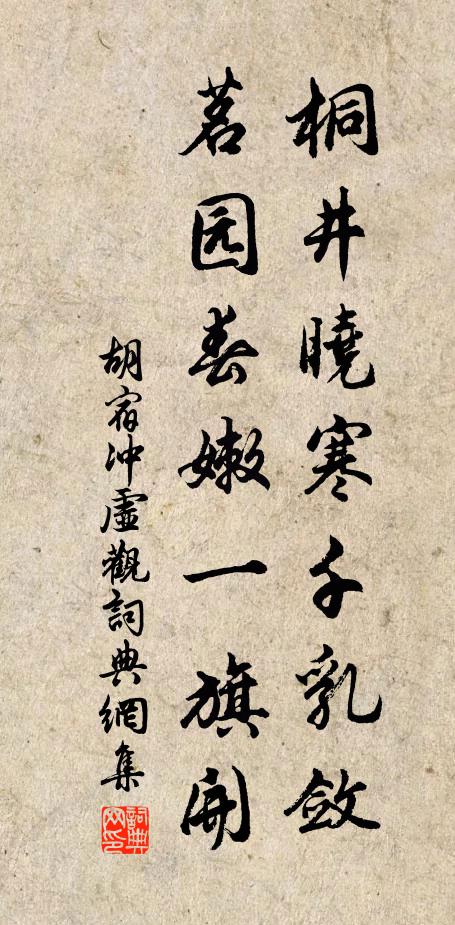 桐井曉寒千乳斂
茗园春嫩一旗開
胡宿冲虛觀詞典網集
詞典網印